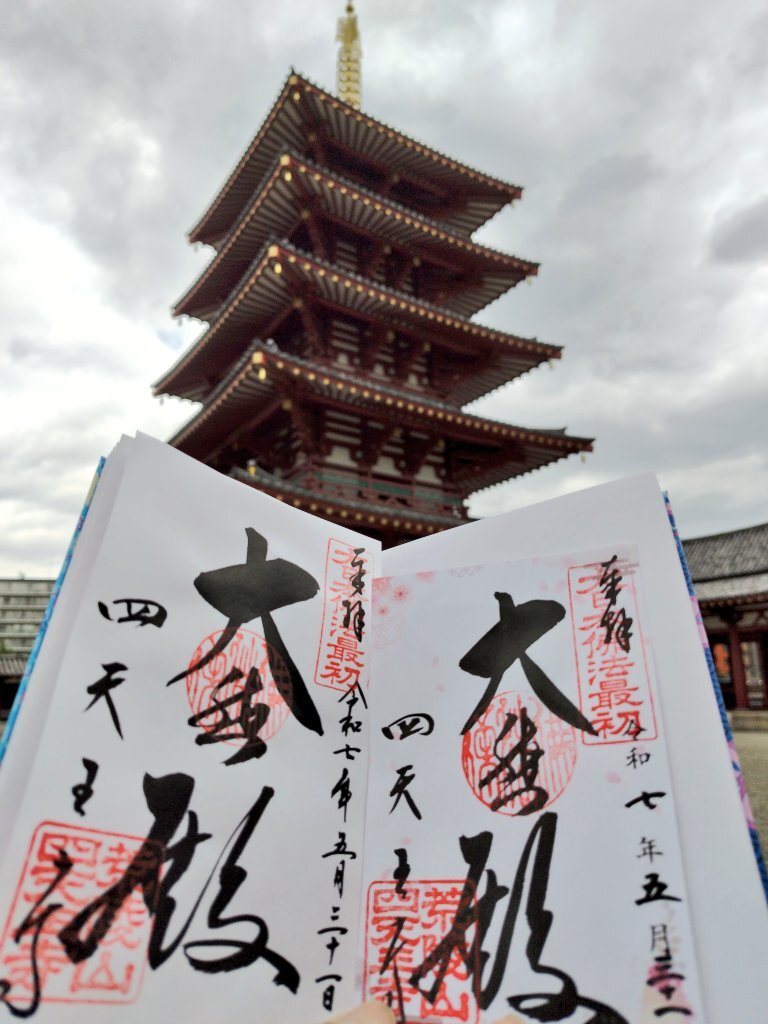 奉拝
佛法最初
令和七年五月三十一
大悲殿
四天王寺
荒陵山
四天王寺
奉拝
佛法最初
令和七年五月三十一日
大悲殿
四天王寺
荒陵山
四天王寺